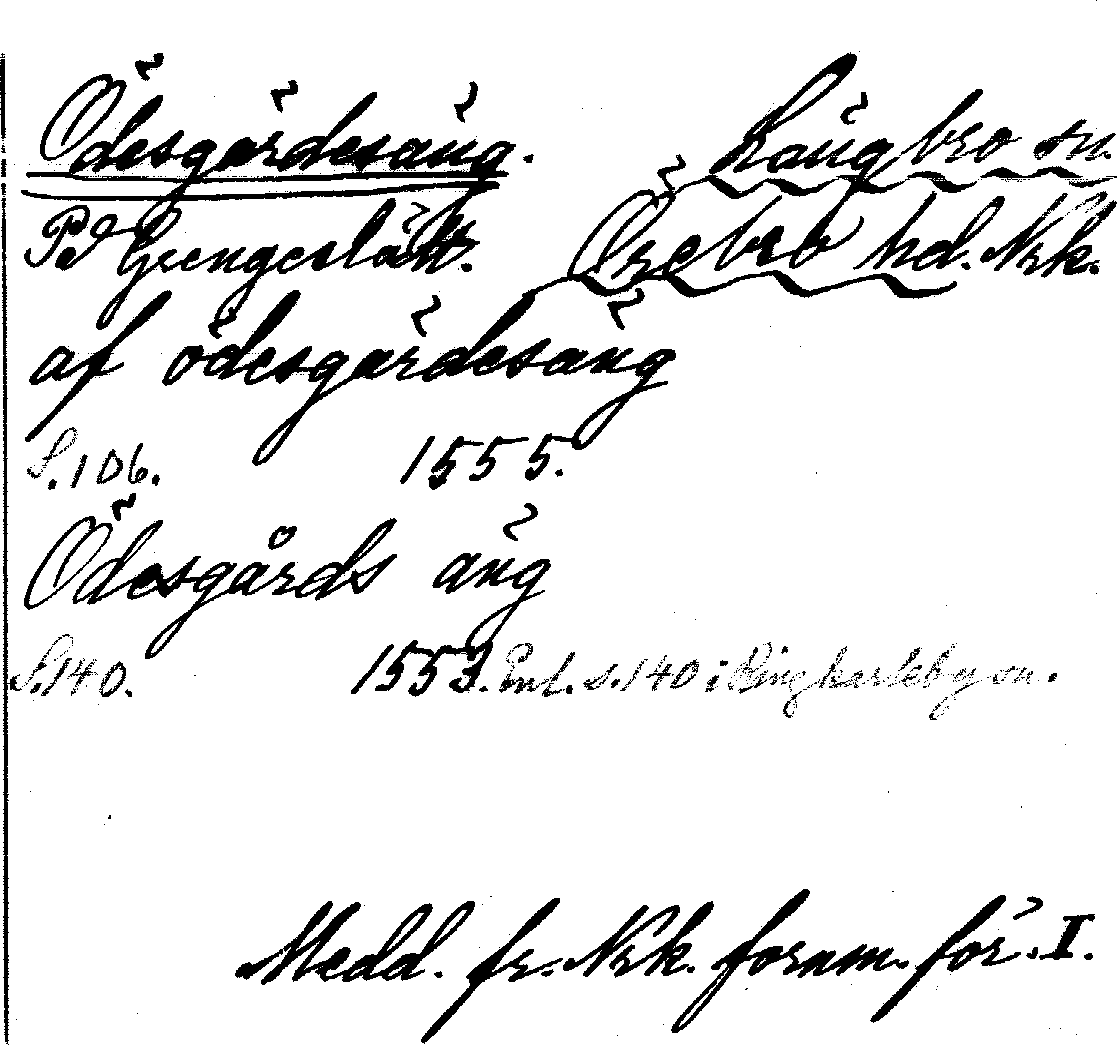 Ödesgärdesäng. Längbro sn.
På Gungeslätt. Örebro hd. Nrk.
af ödesgärdesäng
S.106. 1555.
Ödesgårds äng
S.140. 1553. Enl. s.140 i Ringkarleby sn.
Medd. fr. Nrk. fornm. för. I.